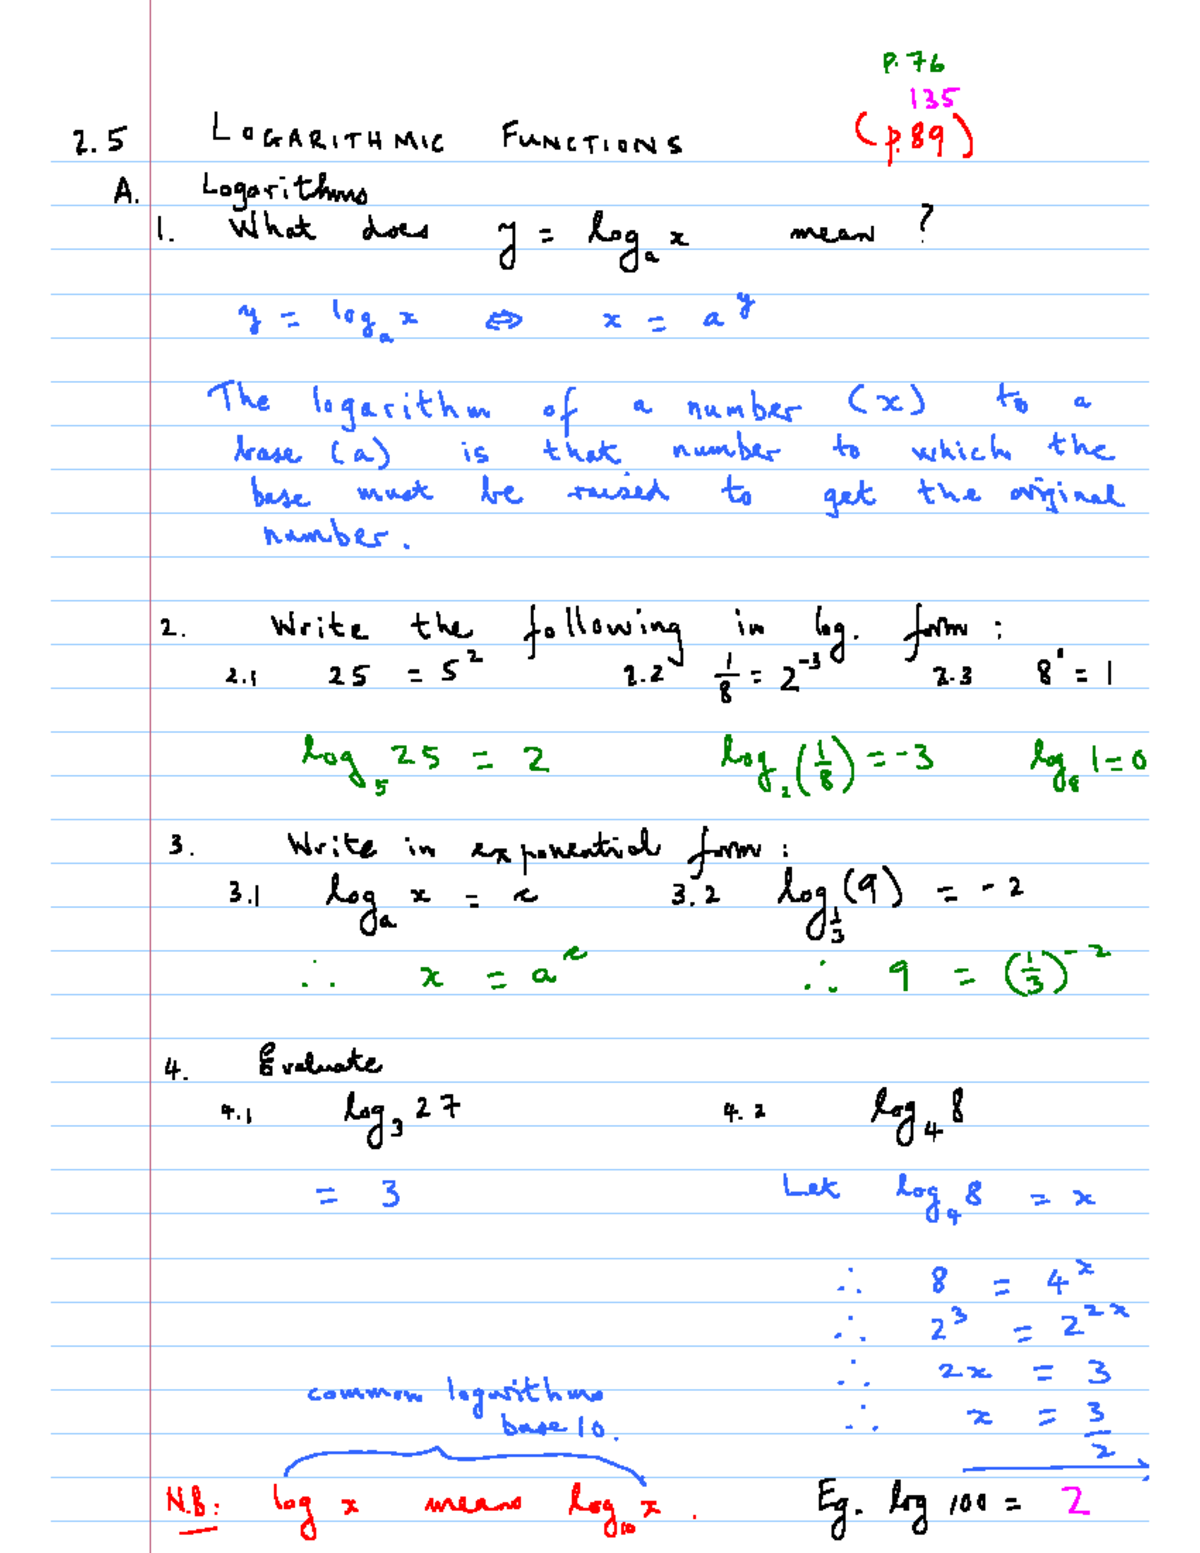 p.76
135
2.5 LOGARITHMIC FUNCTIONS (p.89)
A. Logarithms
1. What does y = logₐ x mean ?
y = logₐ x ⇔ x = a^y
The logarithm of a number (x) to a
base (a) is that number to which the
base must be raised to get the original
number.
2. Write the following in log. form :
2.1 25 = 5² 2.2 1/8 = 2⁻³ 2.3 8⁰ = 1
log₅ 25 = 2 log₂ (1/8) = -3 log₈ 1 = 0
3. Write in exponential form :
3.1 logₐ x = c 3.2 log_{1/3} (9) = -2
∴ x = a^c ∴ 9 = (1/3)⁻²
4. Evaluate
4.1 log₃ 27 4.2 log₄ 8
= 3 Let log₄ 8 = x
∴ 8 = 4^x
∴ 2³ = 2^{2x}
∴ 2x = 3
common logarithms
∴ x = 3/2
base 10.
N.B: log x means log₁₀ x. Eg. log 100 = 2